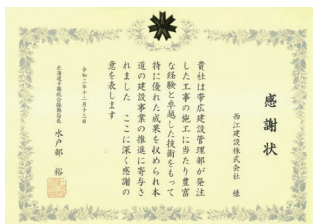 感謝状
西江建設株式会社 様
貴社は帯広建設管理部が発注
した工事の施工に当たり豊富
な経験と卓越した技術をもって
特に優れた成果を収められ本
道の建設事業の推進に寄与さ
れました ここに深く感謝の
意を表します
令和二年十二月十三日
北海道十勝総合振興局長 水戸部 裕